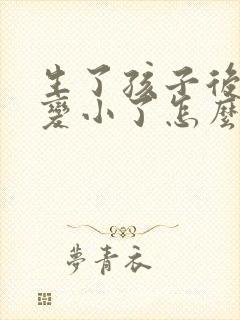 生了孩子後
變小了怎麼
夢青衣